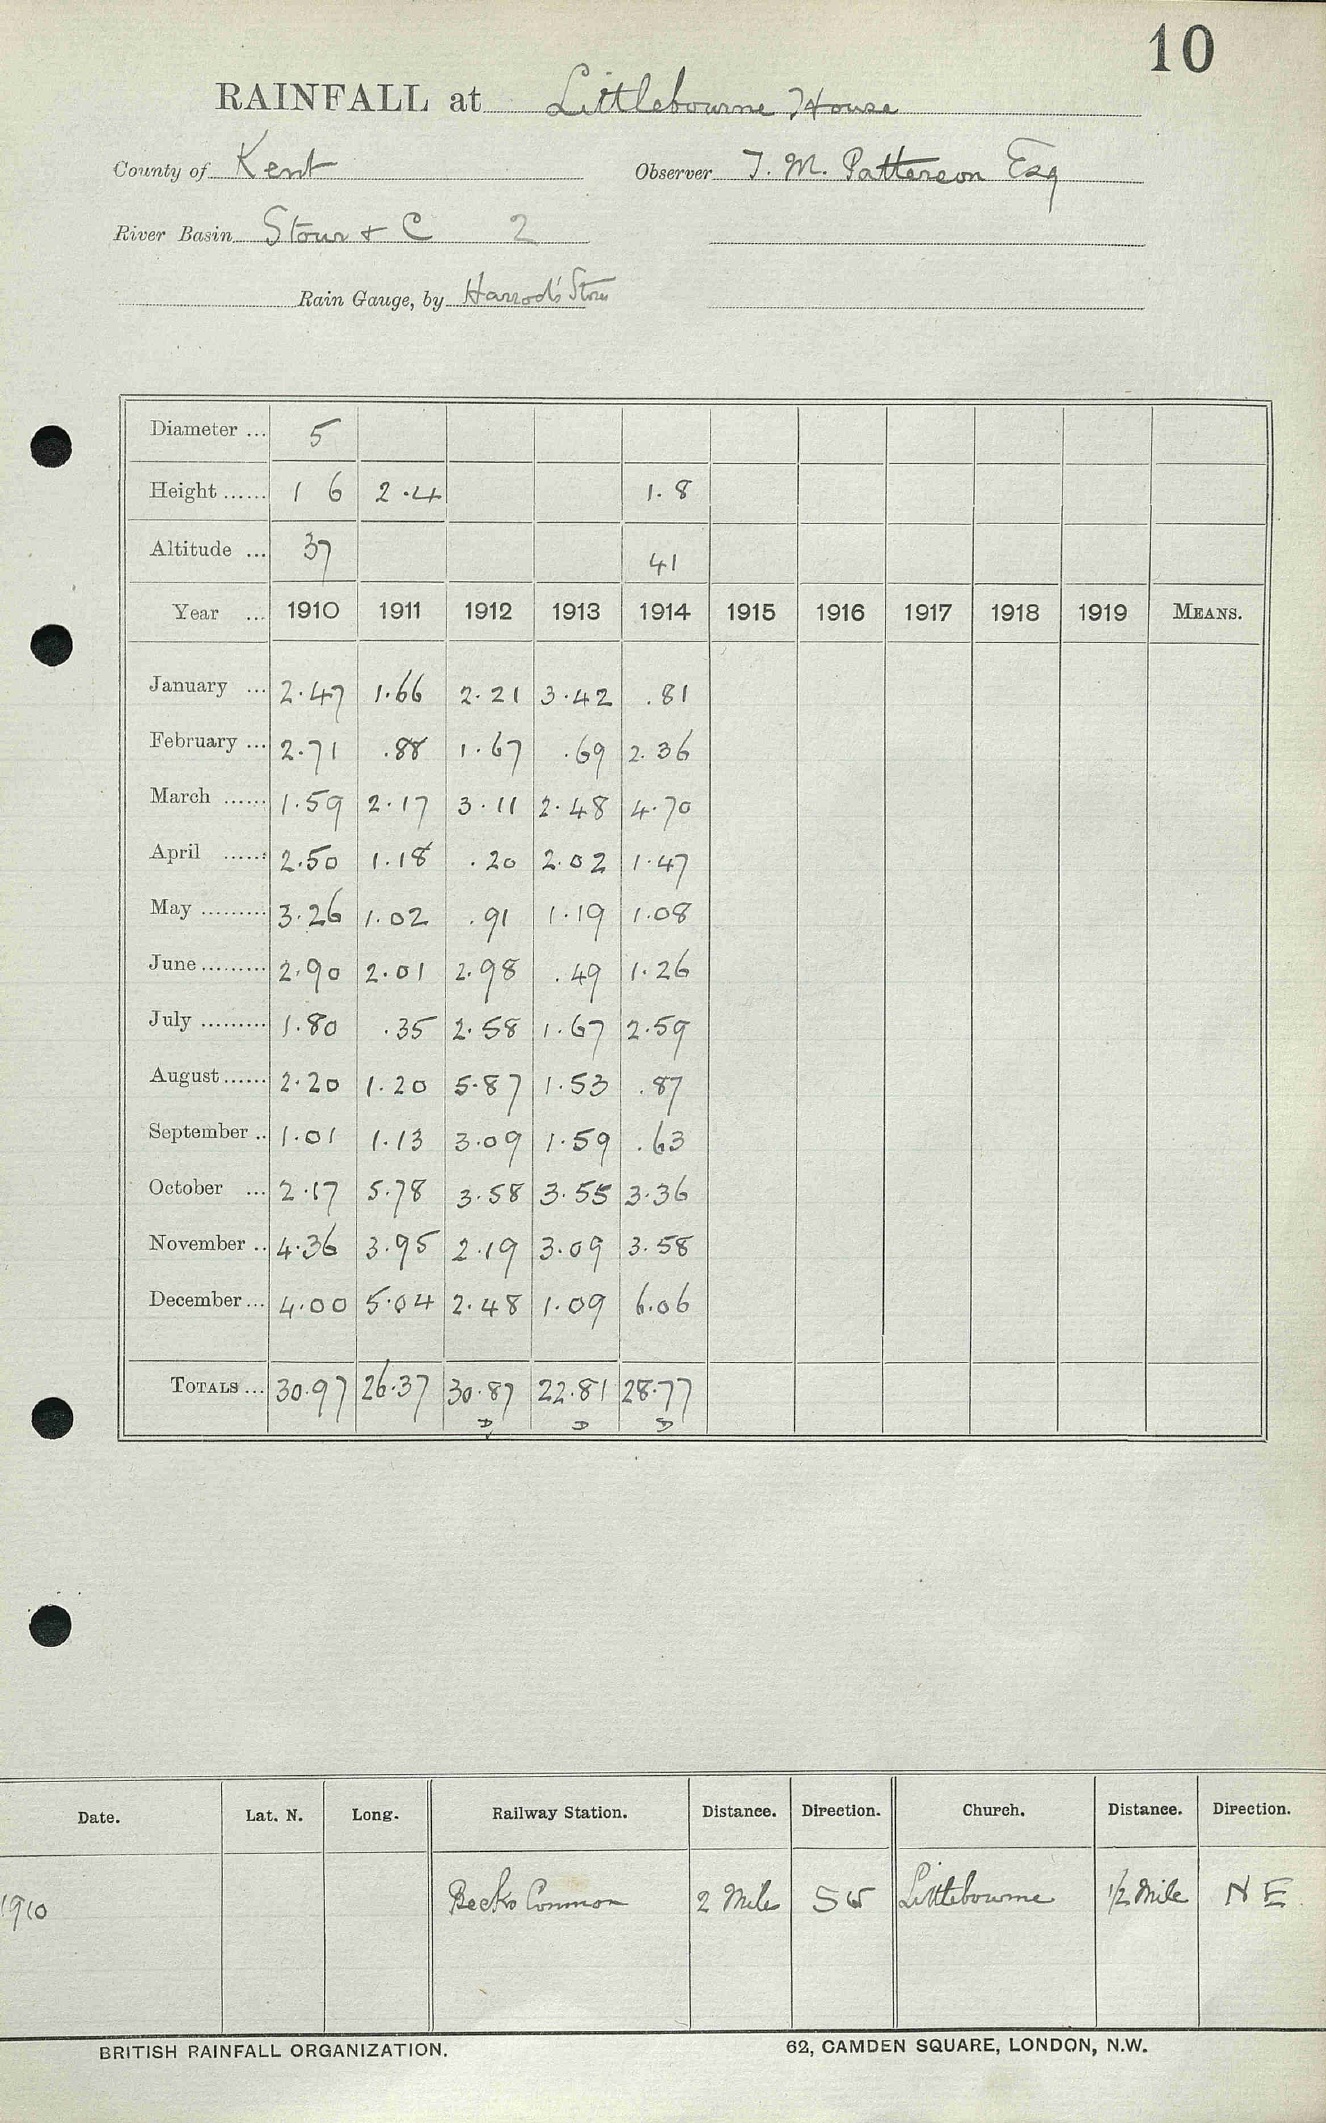 10
RAINFALL at Littlebourne House
County of Kent Observer T. M. Patterson Esq
River Basin Stour & C 2
Rain Gauge, by Harrod's Stores
Diameter ... 5
Height ...... 1 6 2.4 1.8
Altitude ... 37 41
Year ... 1910 1911 1912 1913 1914 1915 1916 1917 1918 1919 MEANS.
January ... 2.47 1.66 2.21 3.42 .81
February ... 2.71 .88 1.67 .69 2.36
March ...... 1.59 2.17 3.11 2.48 4.70
April ...... 2.50 1.18 .20 2.02 1.47
May ......... 3.26 1.02 .91 1.19 1.08
June ......... 2.90 2.01 2.98 .49 1.26
July ......... 1.80 .35 2.58 1.67 2.59
August ...... 2.20 1.20 5.87 1.53 .87
September .. 1.01 1.13 3.09 1.59 .63
October ... 2.17 5.78 3.58 3.55 3.36
November .. 4.36 3.95 2.19 3.09 3.58
December ... 4.00 5.04 2.48 1.09 6.06
TOTALS ... 30.97 26.37 30.87 22.81 28.77
D D D
Date. Lat. N. Long. Railway Station. Distance. Direction. Church. Distance. Direction.
1910 Common 2 Miles SW Littlebourne 1/2 Mile N E
BRITISH RAINFALL ORGANIZATION. 62, CAMDEN SQUARE, LONDON, N.W.